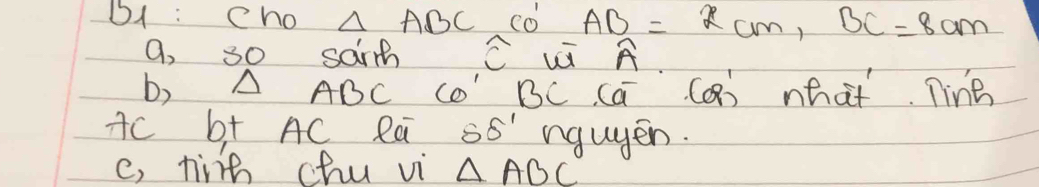 B1: Cho Δ ABC có AB = cm, BC = 8cm
a, so sánh Ĉ và Â.
b, Δ ABC có BC cạ lớn nhất. Tính
AC bt AC là số nguyên.
c, tính chu vi Δ ABC